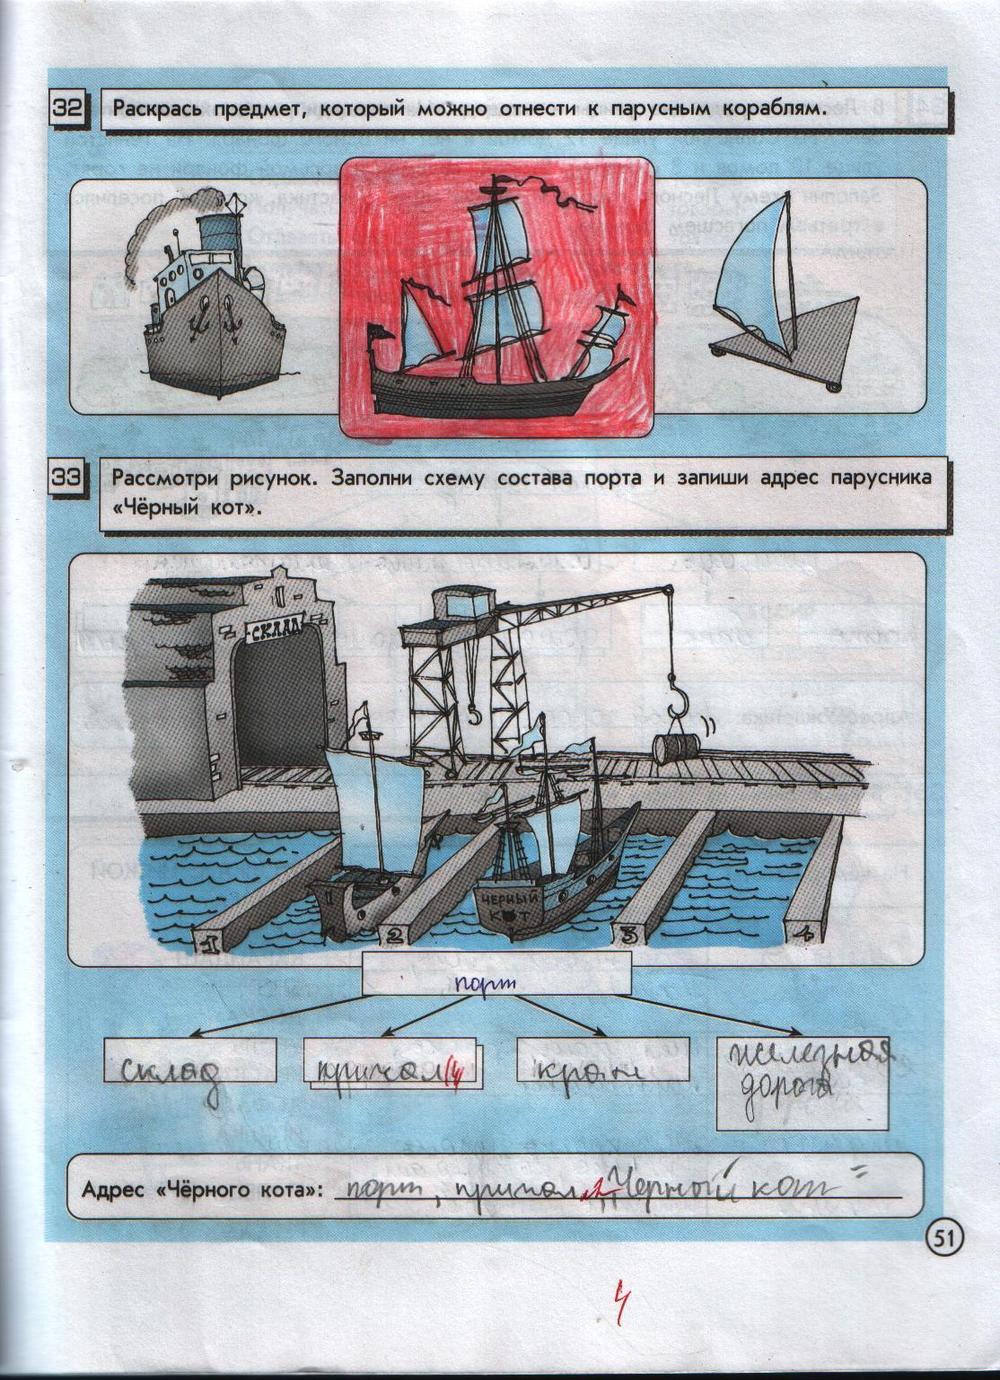 32
Раскрась предмет, который можно отнести к парусным кораблям.
33
Рассмотри рисунок. Заполни схему состава порта и запиши адрес парусника
«Чёрный кот».
СКЛАД
ЧЕРНЫЙ
КОТ
1 2 3 4
порт
склад причал (4 кран железная
дорога
Адрес «Чёрного кота»: порт, причал 2, „Черный кот"
51
4